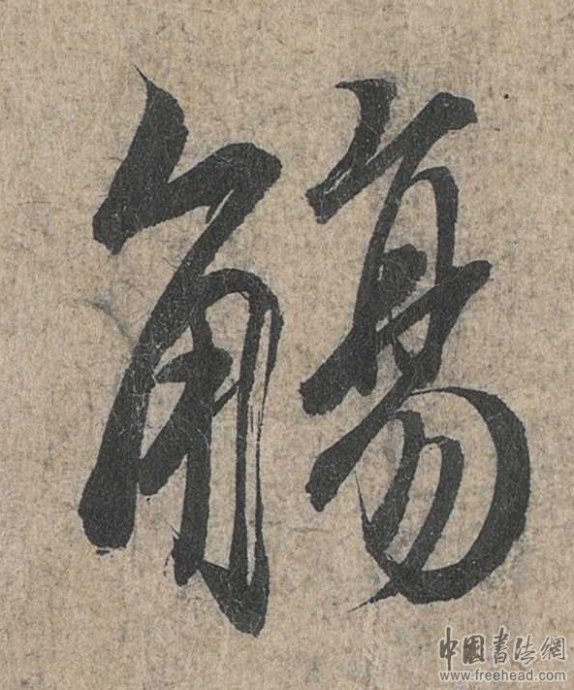 觴
中國書法網
www.freehead.com